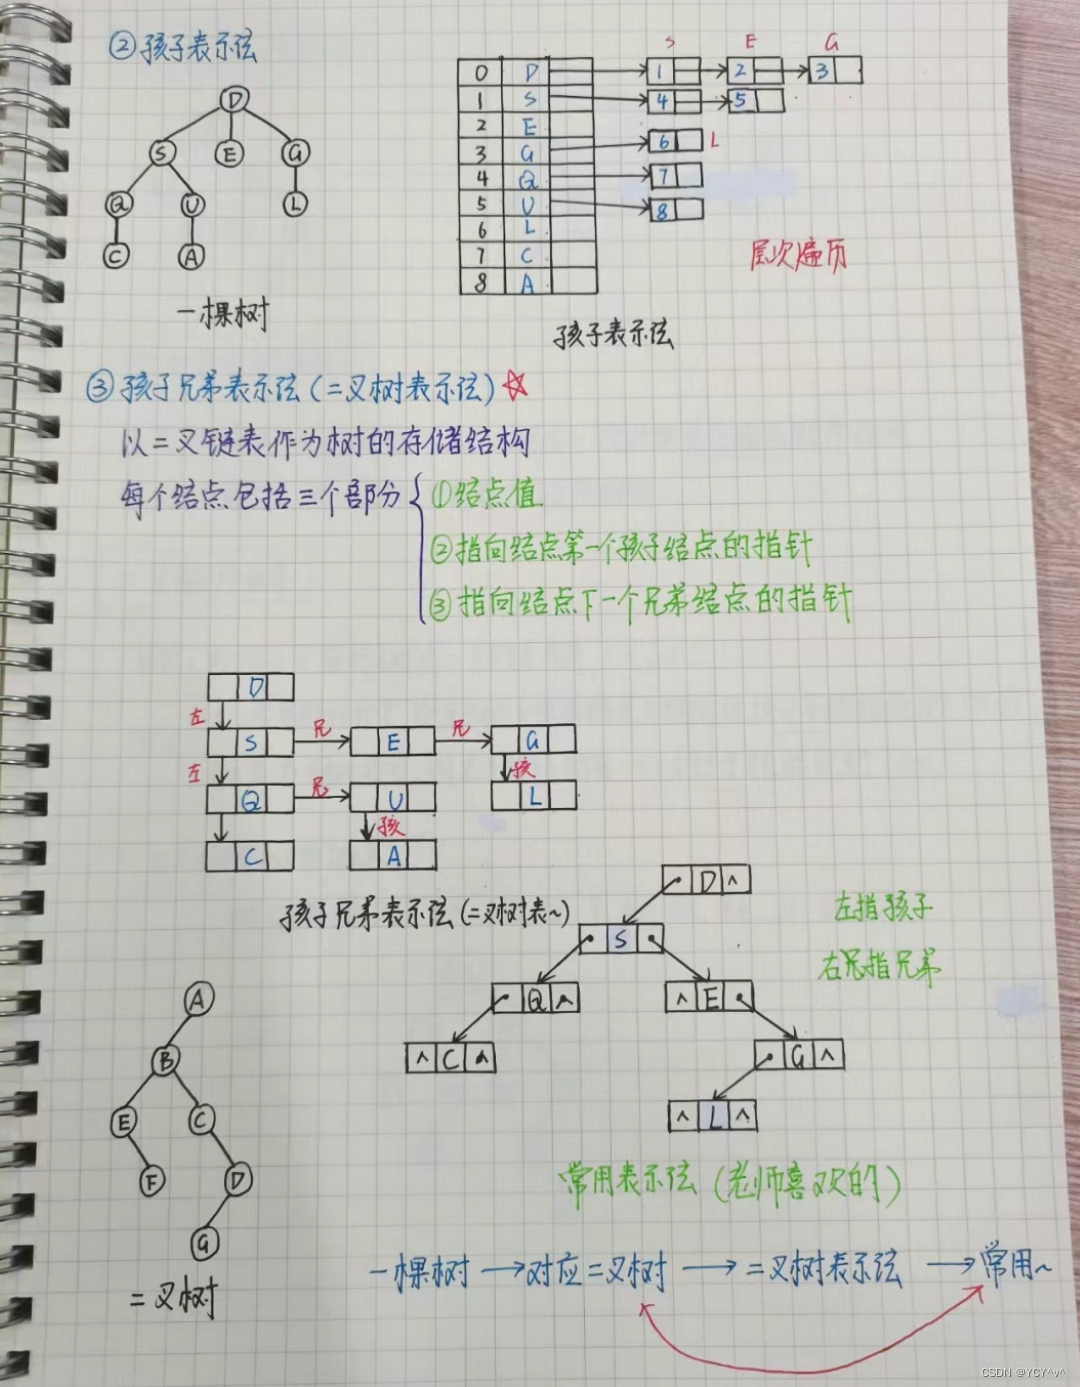 ②孩子表示法
D
S E G
Q U L
C A
一棵树
S E G
0 D 1 2 3
1 S 4 5
2 E
3 G 6 L
4 Q 7
5 U 8
6 L
7 C
8 A
层次遍历
孩子表示法
③孩子兄弟表示法(二叉树表示法)☆
以二叉链表作为树的存储结构
每个结点包括三个部分{①结点值
②指向结点第一个孩子结点的指针
③指向结点下一个兄弟结点的指针
D
左
S 兄 E 兄 G
左 孩
Q 兄 U L
孩
C A
孩子兄弟表示法(二叉树表~)
D ^
S
Q ^ ^ E
^ C ^ G ^
^ L ^
左指孩子
右兄指兄弟
常用表示法(老师喜欢的)
A
B
E C
F D
G
二叉树
一棵树→对应二叉树→二叉树表示法→常用~
CSDN @YCY^v^